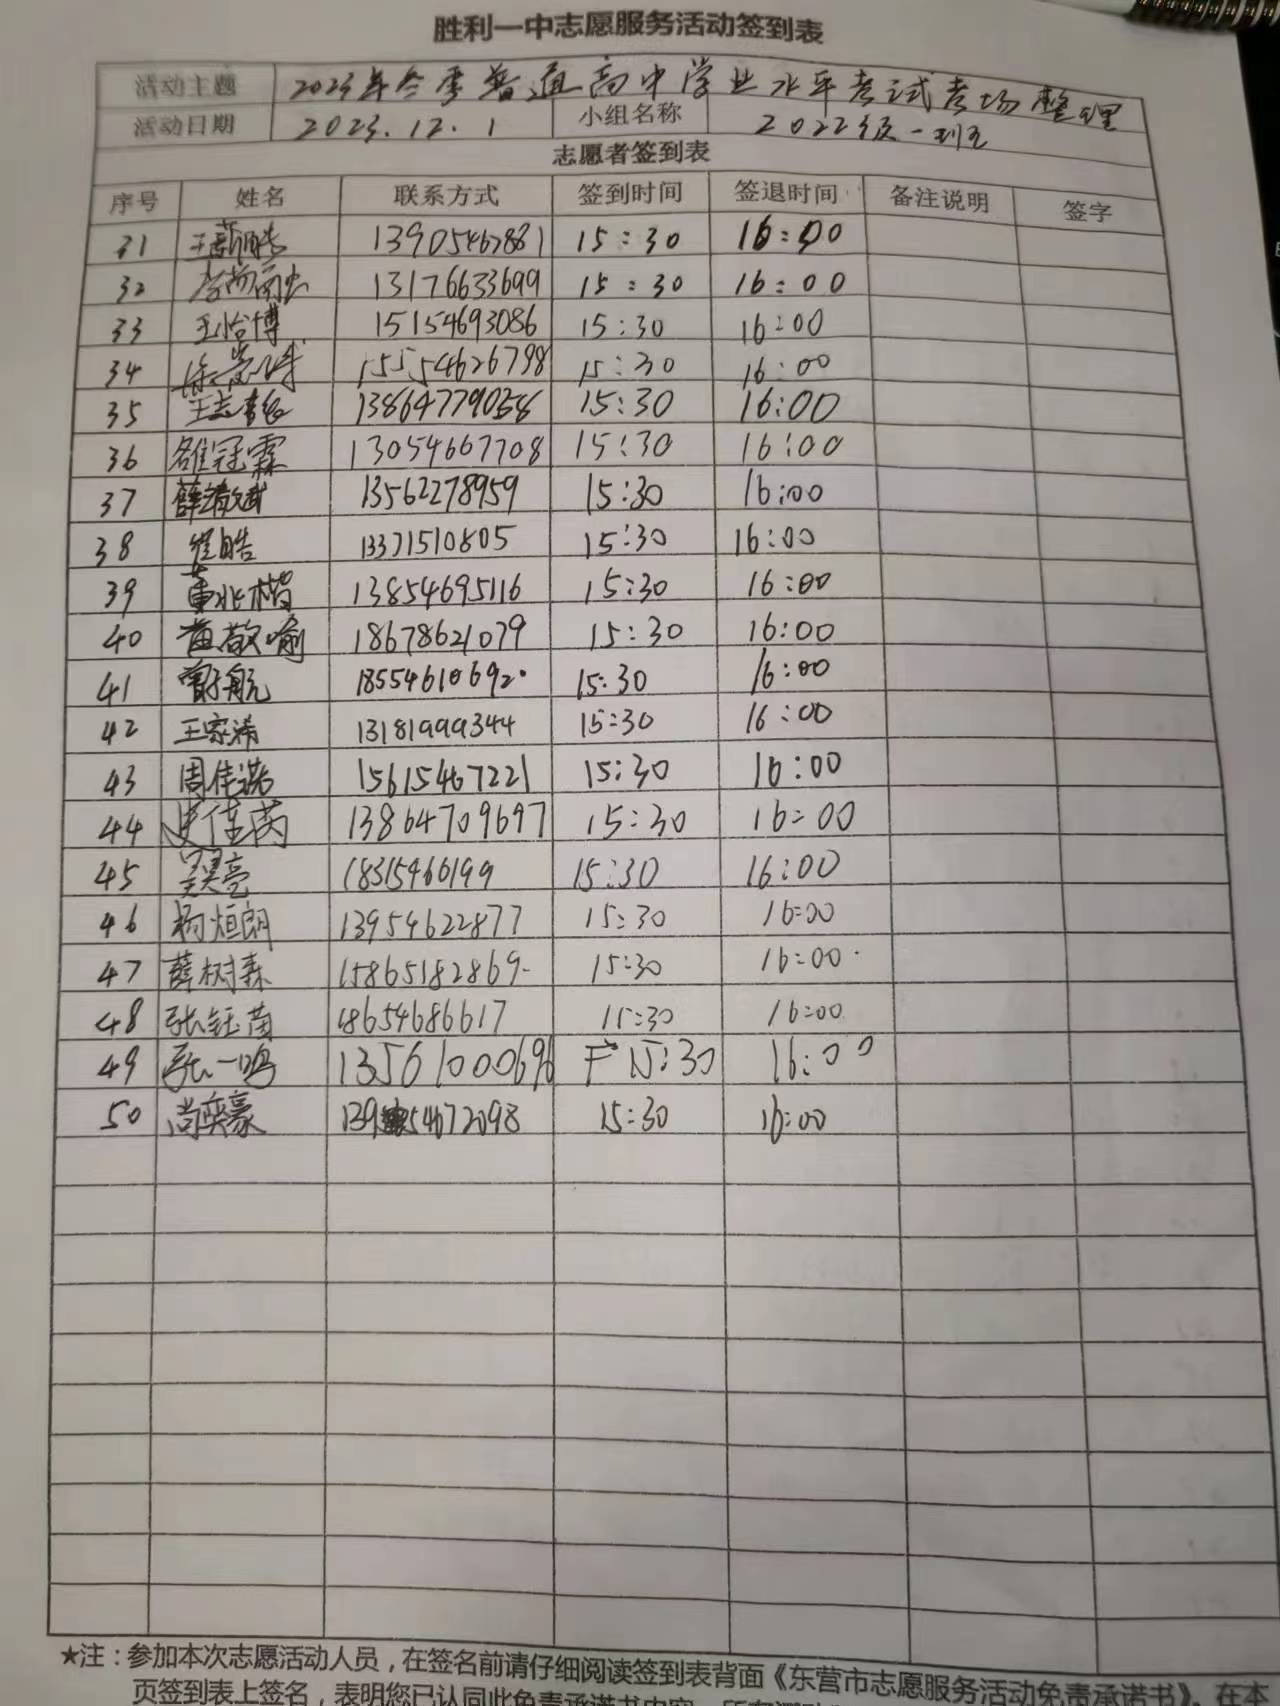 胜利一中志愿服务活动签到表
活动主题 2023年冬季普通高中学业水平考试考场整理
活动日期 2023.12.1 小组名称 2022级一班
志愿者签到表
序号 姓名 联系方式 签到时间 签退时间 备注说明 签字
31 王 13905467881 15:30 16:00
32 李 13176633699 15:30 16:00
33 王怡博 15154693086 15:30 16:00
34 徐 15554626798 15:30 16:00
35 王志 13864779038 15:30 16:00
36 雒冠霖 13054667708 15:30 16:00
37 薛靖斌 13562278959 15:30 16:00
38 崔皓 13371510805 15:30 16:00
39 董兆楷 13854695116 15:30 16:00
40 黄敬喻 18678621079 15:30 16:00
41 航 18554610692 15:30 16:00
42 王家浠 13181999344 15:30 16:00
43 周佳诺 15615467221 15:30 16:00
44 史佳芮 13864709697 15:30 16:00
45 吴昊亮 18315466199 15:30 16:00
46 杨烜朗 13954622877 15:30 16:00
47 薛树森 15865182869 15:30 16:00
48 张钰苒 18654686617 15:30 16:00
49 张一鸣 13561000696 下 15:30 16:00
50 尚奕豪 139 54672098 15:30 16:00
★注：参加本次志愿活动人员，在签名前请仔细阅读签到表背面《东营市志愿服务活动免责承诺书》，在本
页签到表上签名，表明您已认同此免责承诺书内容